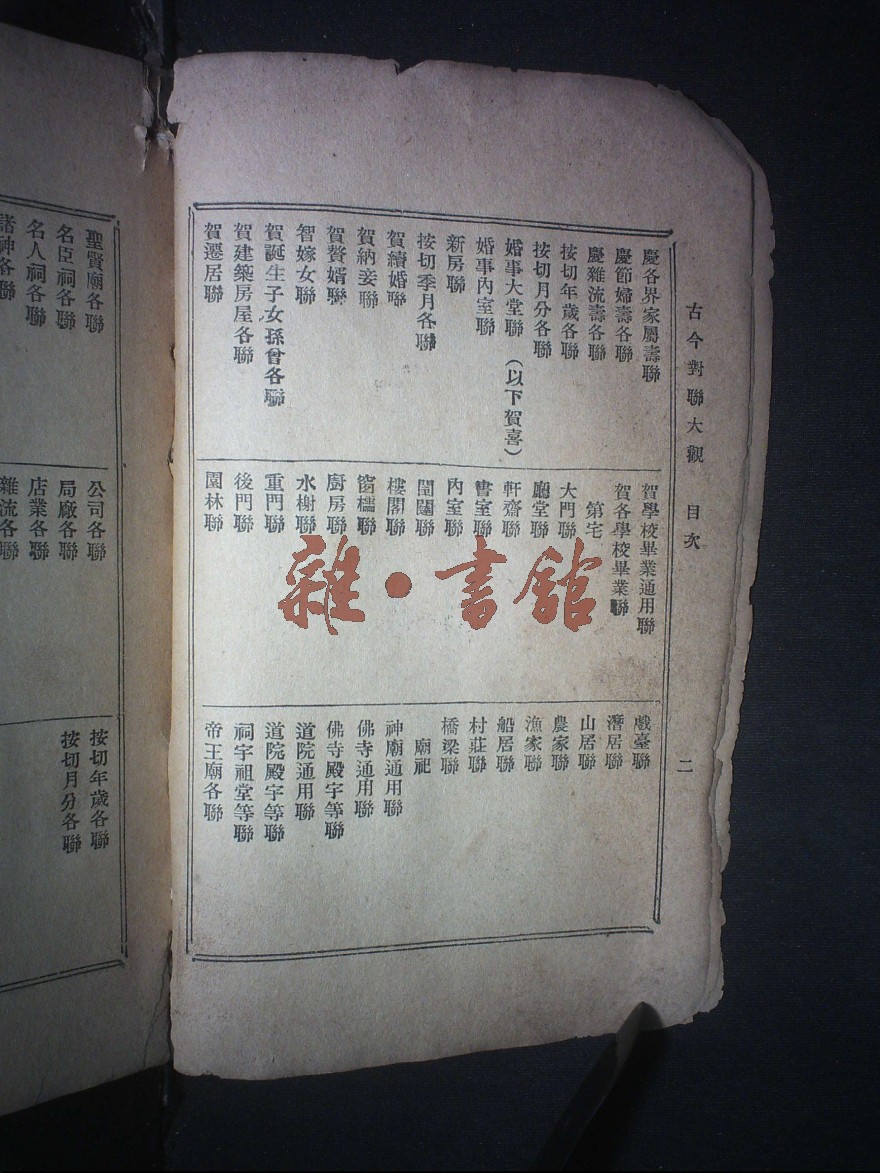 古今對聯大觀 目次 二
慶各界家屬壽聯
慶節婦壽各聯
慶雜流壽各聯
按切年歲各聯
按切月分各聯
婚事大堂聯（以下賀喜）
婚事內室聯
新房聯
按切季月各聯
賀續婚聯
賀納妾聯
賀贅婿聯
智嫁女聯
賀誕生子女孫曾各聯
賀建築房屋各聯
賀遷居聯
賀學校畢業通用聯
賀各學校畢業聯
第宅
大門聯
廳堂聯
軒齋聯
書室聯
內室聯
閨闥聯
樓閣聯
窗櫺聯
廚房聯
水榭聯
重門聯
後門聯
園林聯
戲臺聯
潛居聯
山居聯
農家聯
漁家聯
船居聯
村莊聯
橋梁聯
廟祀
神廟通用聯
佛寺通用聯
佛寺殿宇等聯
道院通用聯
道院殿宇等聯
祠宇祖堂等聯
帝王廟各聯
聖賢廟各聯
名臣祠各聯
名人祠各聯
諸神各聯
公司各聯
局廠各聯
店業各聯
雜流各聯
按切年歲各聯
按切月分各聯
雜·書館